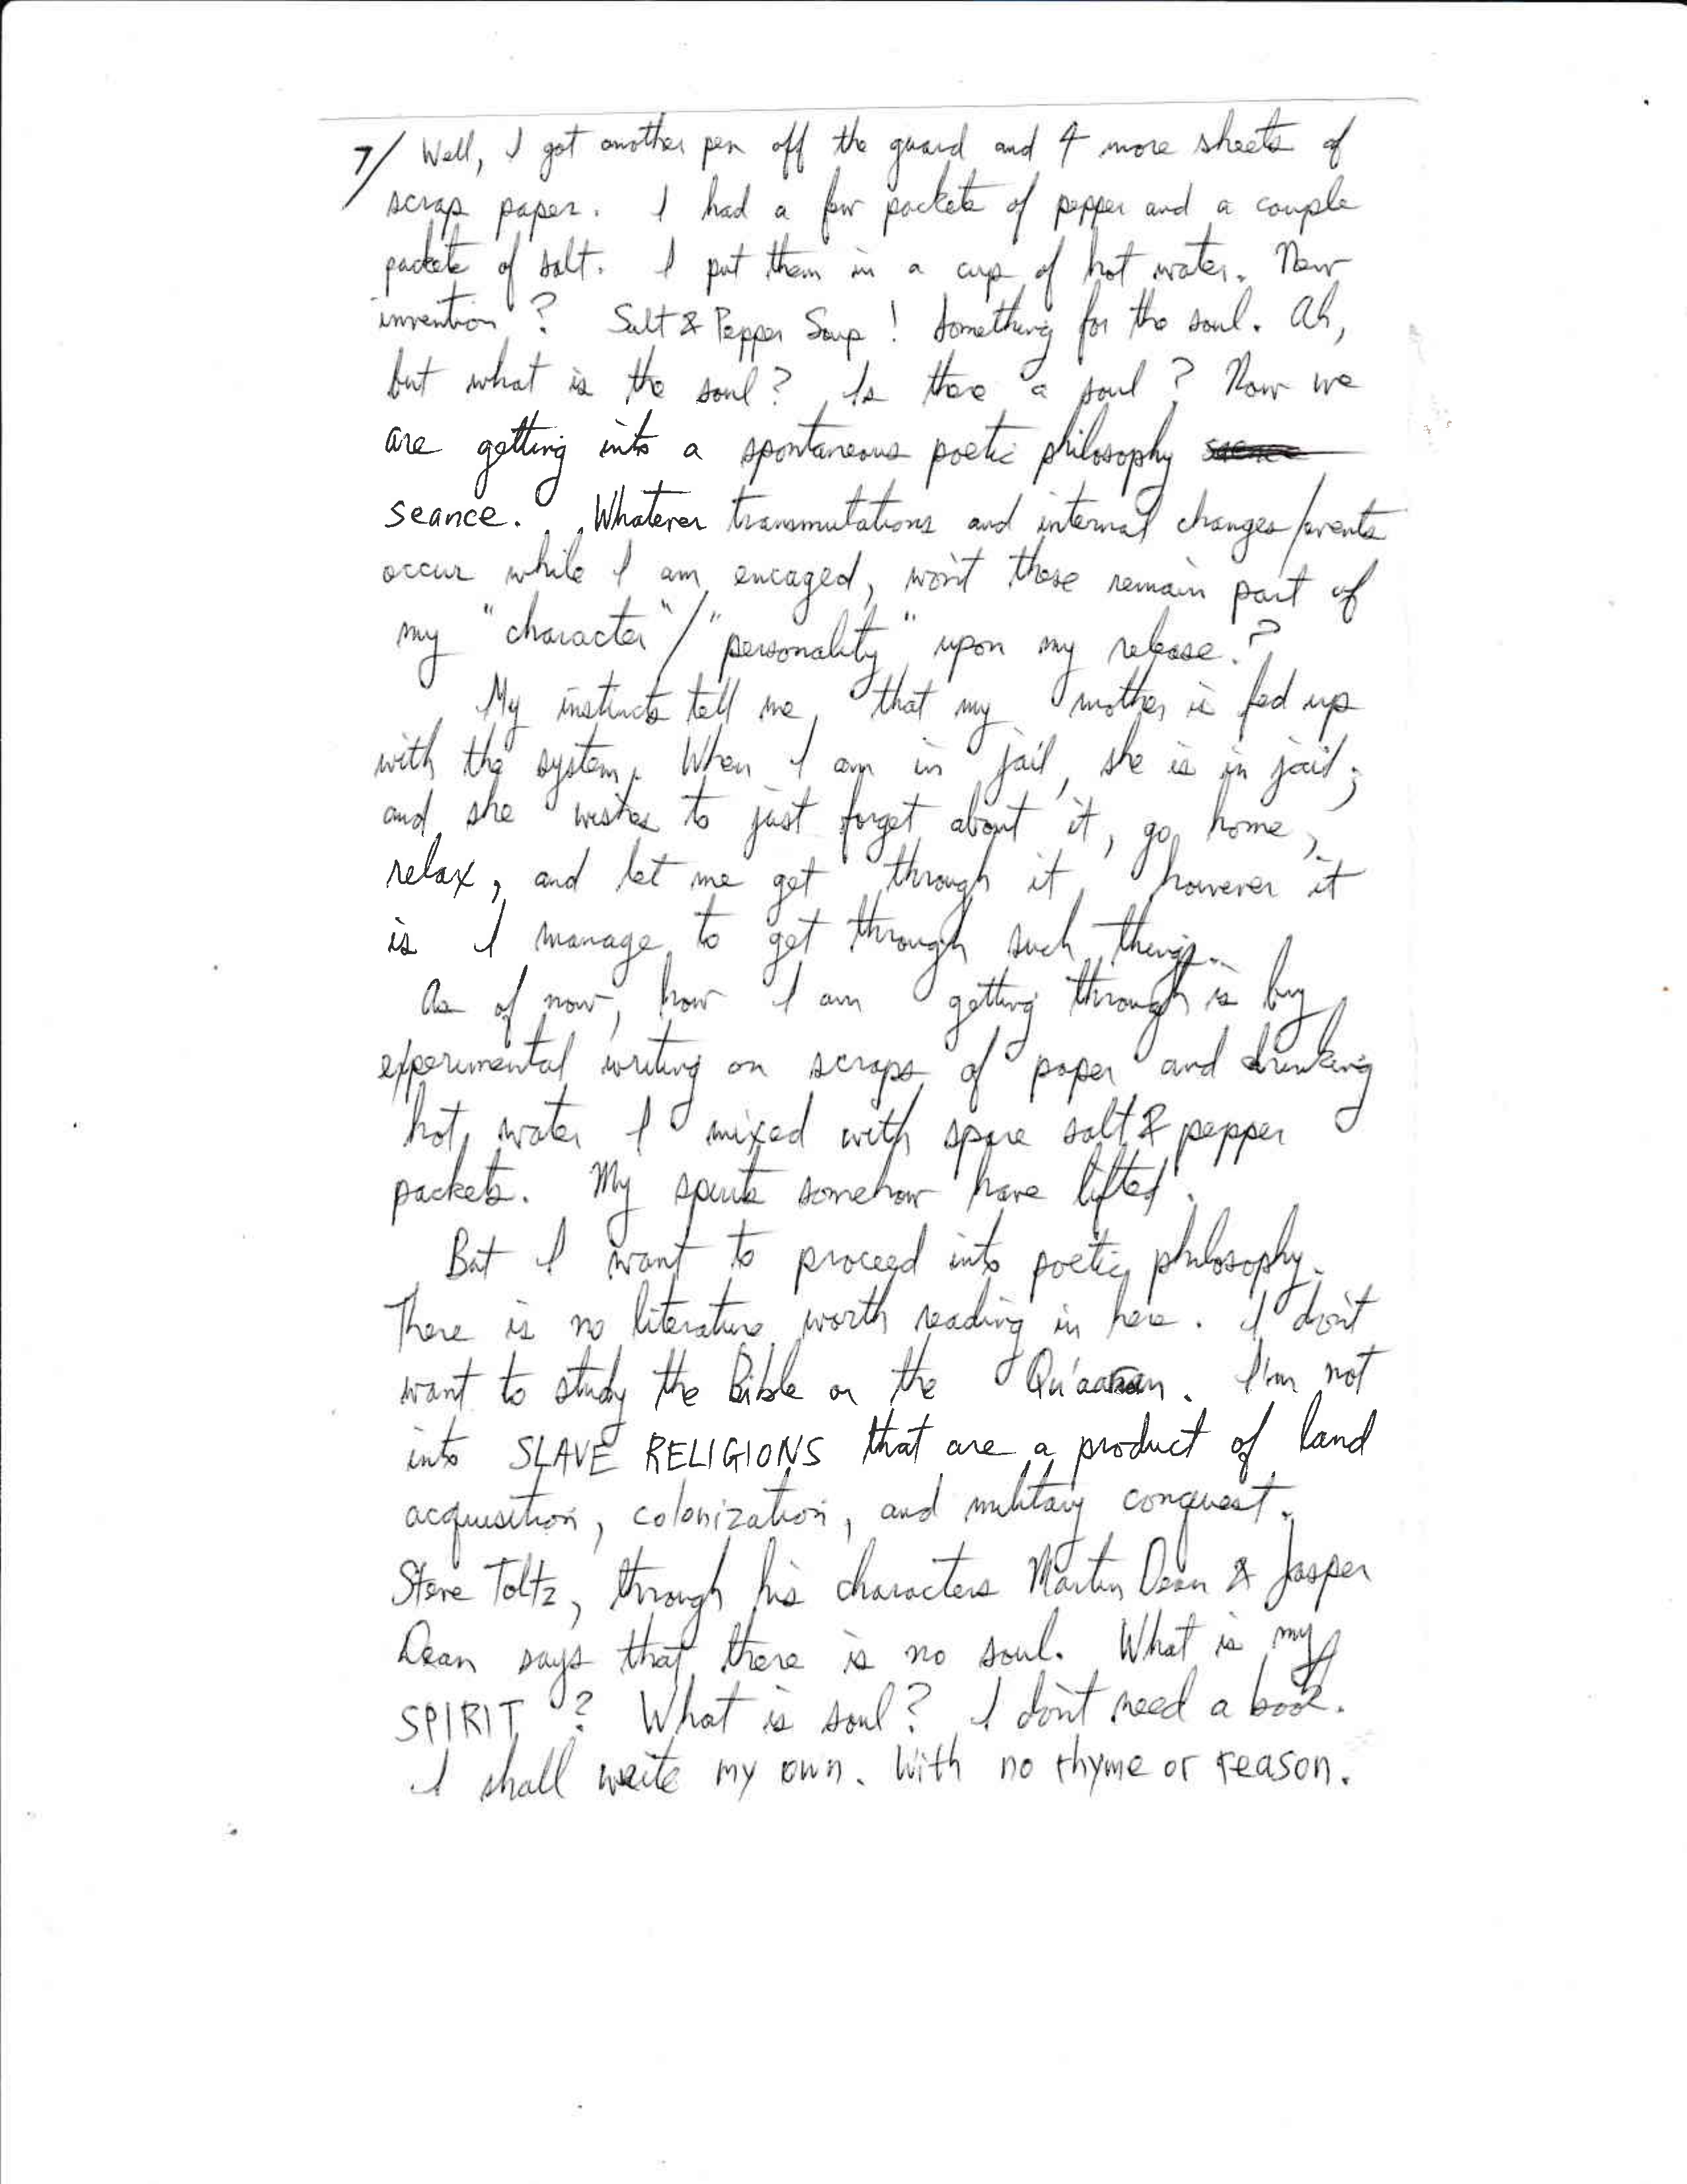 7/ Well, I got another pen off the guard and 4 more sheets of
scrap paper. I had a few packets of pepper and a couple
packets of salt. I put them in a cup of hot water. New
invention? Salt & Pepper Soup! Something for the soul. Ah,
but what is the soul? Is there a soul? Now we
are getting into a spontaneous poetic philosophy
seance. Whatever transmutations and internal changes/events
occur while I am encaged, won't these remain part of
my "character"/"personality" upon my release.?
My instincts tell me, that my mother is fed up
with the system. When I am in jail, she is in jail;
and she wishes to just forget about it, go home,
relax, and let me get through it, however it
is I manage to get through such things.
As of now, how I am getting through is by
experimental writing on scraps of paper and drinking
hot water I mixed with spare salt & pepper
packets. My spirits somehow have lifted.
But I want to proceed into poetic philosophy.
There is no literature worth reading in here. I don't
want to study the Bible or the Qu'aaran. I'm not
into SLAVE RELIGIONS that are a product of land
acquisition, colonization, and military conquest.
Steve Toltz, through his characters Martin Dean & Jasper
Dean says that there is no soul. What is my
SPIRIT? What is soul? I don't need a book.
I shall write my own. With no rhyme or reason.